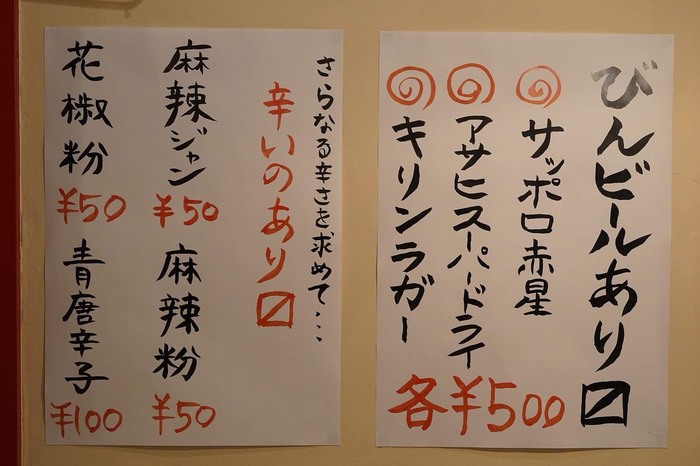 びんビールあり〼
サッポロ赤星
アサヒスーパードライ
キリンラガー
各¥500
さらなる辛さを求めて・・・
辛いのあり〼
麻辣ジャン
¥50
麻辣粉
¥50
花椒粉
¥50
青唐辛子
¥100